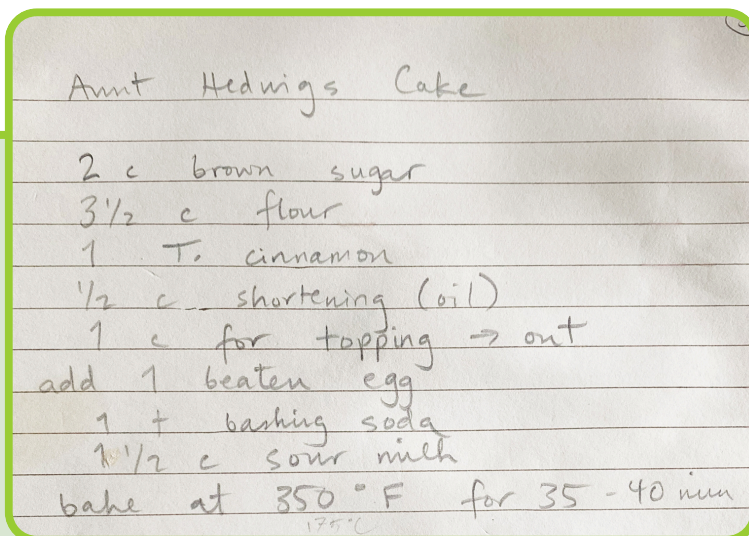 Aunt Hedwigs Cake
2 c brown sugar
3 1/2 c flour
1 T. cinnamon
1/2 c shortening (oil)
1 c for topping → out
add 1 beaten egg
1 t baking soda
1 1/2 c sour milk
bake at 350 °F for 35 - 40 min
175°C